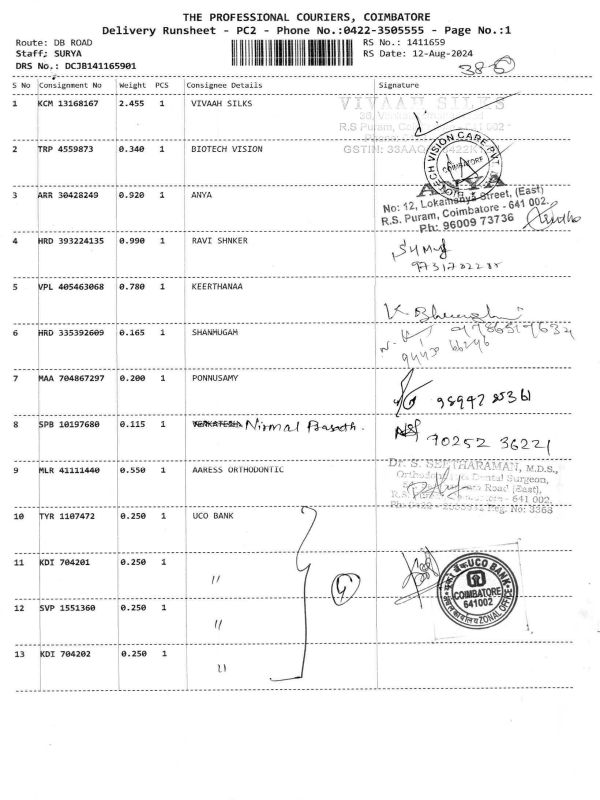 THE PROFESSIONAL COURIERS, COIMBATORE
Delivery Runsheet - PC2 - Phone No.:0422-3505555 - Page No.:1
Route: DB ROAD RS No.: 1411659
Staff; SURYA RS Date: 12-Aug-2024
DRS No.: DCJB141165901
S No Consignment No Weight PCS Consignee Details Signature
1 KCM 13168167 2.455 1 VIVAAH SILKS
VIVAAH SILKS
R.S Puram,
GSTIN: 33AAQ
2 TRP 4559873 0.340 1 BIOTECH VISION
TECH VISION CARE PVT
COIMBATORE
3 ARR 30428249 0.920 1 ANYA
ANYA
No: 12, Lokamanya Street, (East)
R.S. Puram, Coimbatore - 641 002.
Ph: 96009 73736
4 HRD 393224135 0.990 1 RAVI SHNKER
5 VPL 405463068 0.780 1 KEERTHANAA
6 HRD 335392609 0.165 1 SHANMUGAM
94430 66246
7 MAA 704867297 0.200 1 PONNUSAMY
8 SPB 10197680 0.115 1 VENKATESHA Nirmal Prasath.
70252 36221
9 MLR 41111440 0.550 1 AARESS ORTHODONTIC
Dr. S. SEETHARAMAN, M.D.S.,
Orthodontic Dental Surgeon,
Road (East),
R.S. 641 002.
Reg. No: 3363
10 TYR 1107472 0.250 1 UCO BANK
11 KDI 704201 0.250 1 〃
UCO BANK
COIMBATORE
641002
ZONAL OFFICE
12 SVP 1551360 0.250 1 〃
13 KDI 704202 0.250 1 〃